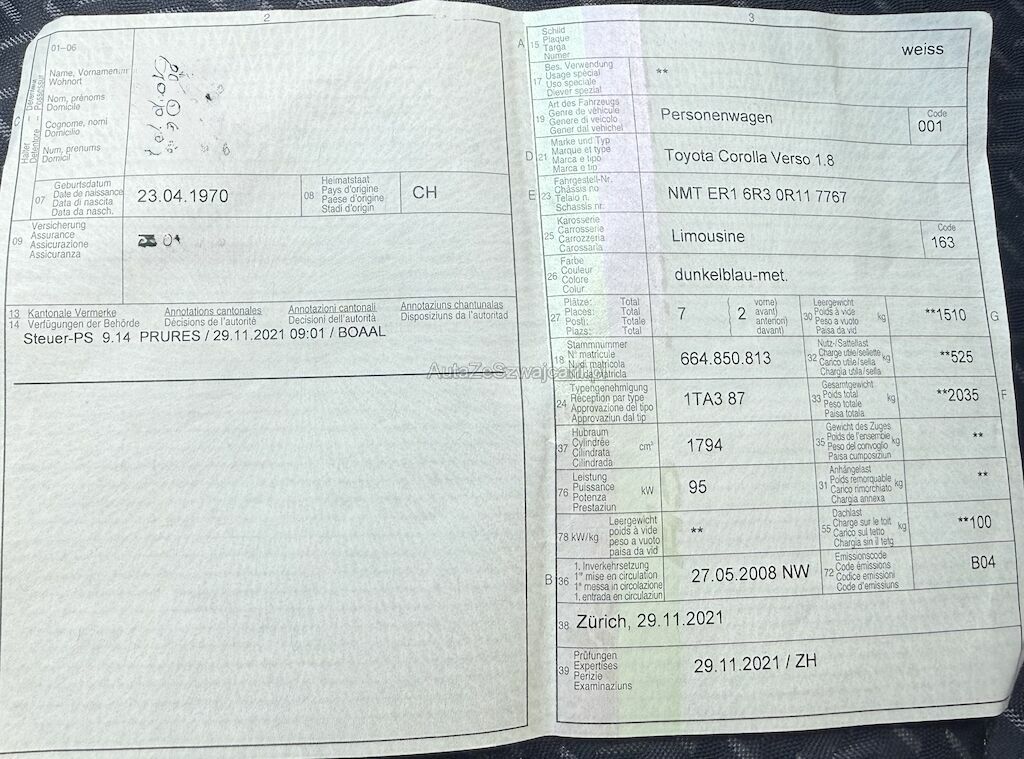 2
01–06
Name, Vornamen
Wohnort
Nom, prénoms
Domicile
Cognome, nomi
Domicilio
Num, prenums
Domicil
C
Halter – Détenteur
Detentore – Possessur
07
Geburtsdatum
Date de naissance
Data di nascita
Data da nasch.
23.04.1970
08
Heimatstaat
Pays d'origine
Paese d'origine
Stadi d'origin
CH
09
Versicherung
Assurance
Assicurazione
Assicuranza
13 Kantonale Vermerke
14 Verfügungen der Behörde
Annotations cantonales
Décisions de l'autorité
Annotazioni cantonali
Decisioni dell'autorità
Annotaziuns chantunalas
Disposiziuns da l'autoritad
Steuer-PS 9.14 PRURES / 29.11.2021 09:01 / BOAAL
AutaZeSzwajcarii.pl
3
A 15
Schild
Plaque
Targa
Numer
weiss
17
Bes. Verwendung
Usage spécial
Uso speciale
Diever spezial
**
19
Art des Fahrzeugs
Genre de véhicule
Genere di veicolo
Gener dal vehichel
Personenwagen
Code
001
D 21
Marke und Typ
Marque et type
Marca e tipo
Marca e tip
Toyota Corolla Verso 1.8
E 23
Fahrgestell-Nr.
Châssis no
Telaio n.
Schassis nr.
NMT ER1 6R3 0R11 7767
25
Karosserie
Carrosserie
Carrozzeria
Carossaria
Limousine
Code
163
26
Farbe
Couleur
Colore
Colur
dunkelblau-met.
27
Plätze: Total
Places: Total
Posti: Totale
Plazs: Total
7
2
vorne)
avant)
anteriori)
davant)
30
Leergewicht
Poids à vide
Peso a vuoto
Paisa da vid
kg
**1510
G
18
Stammnummer
N° matricule
N. di matricola
664.850.813
32
Nutz-/Sattellast
Charge utile/sellette
Carico utile/sella
Chargia utila/sella
kg
**525
24
Typengenehmigung
Réception par type
Approvazione del tipo
Approvaziun dal tip
1TA3 87
33
Gesamtgewicht
Poids total
Peso totale
Paisa totala
kg
**2035
F
37
Hubraum
Cylindrée
Cilindrata
Cilindrada
cm³
1794
35
Gewicht des Zuges
Poids de l'ensemble
Peso del convoglio
Paisa cumposiziun
kg
**
76
Leistung
Puissance
Potenza
Prestaziun
kW
95
31
Anhängelast
Poids remorquable
Carico rimorchiato
Chargia annexa
kg
**
78 kW/kg
Leergewicht
poids à vide
peso a vuoto
paisa da vid
**
55
Dachlast
Charge sur le toit
Carico sul tetto
Chargia sin il tetg
kg
**100
B 36
1. Inverkehrsetzung
1re mise en circulation
1a messa in circolazione
1. entrada en circulaziun
27.05.2008 NW
72
Emissionscode
Code émissions
Codice emissioni
Code d'emissiuns
B04
38
Zürich, 29.11.2021
39
Prüfungen
Expertises
Perizie
Examinaziuns
29.11.2021 / ZH